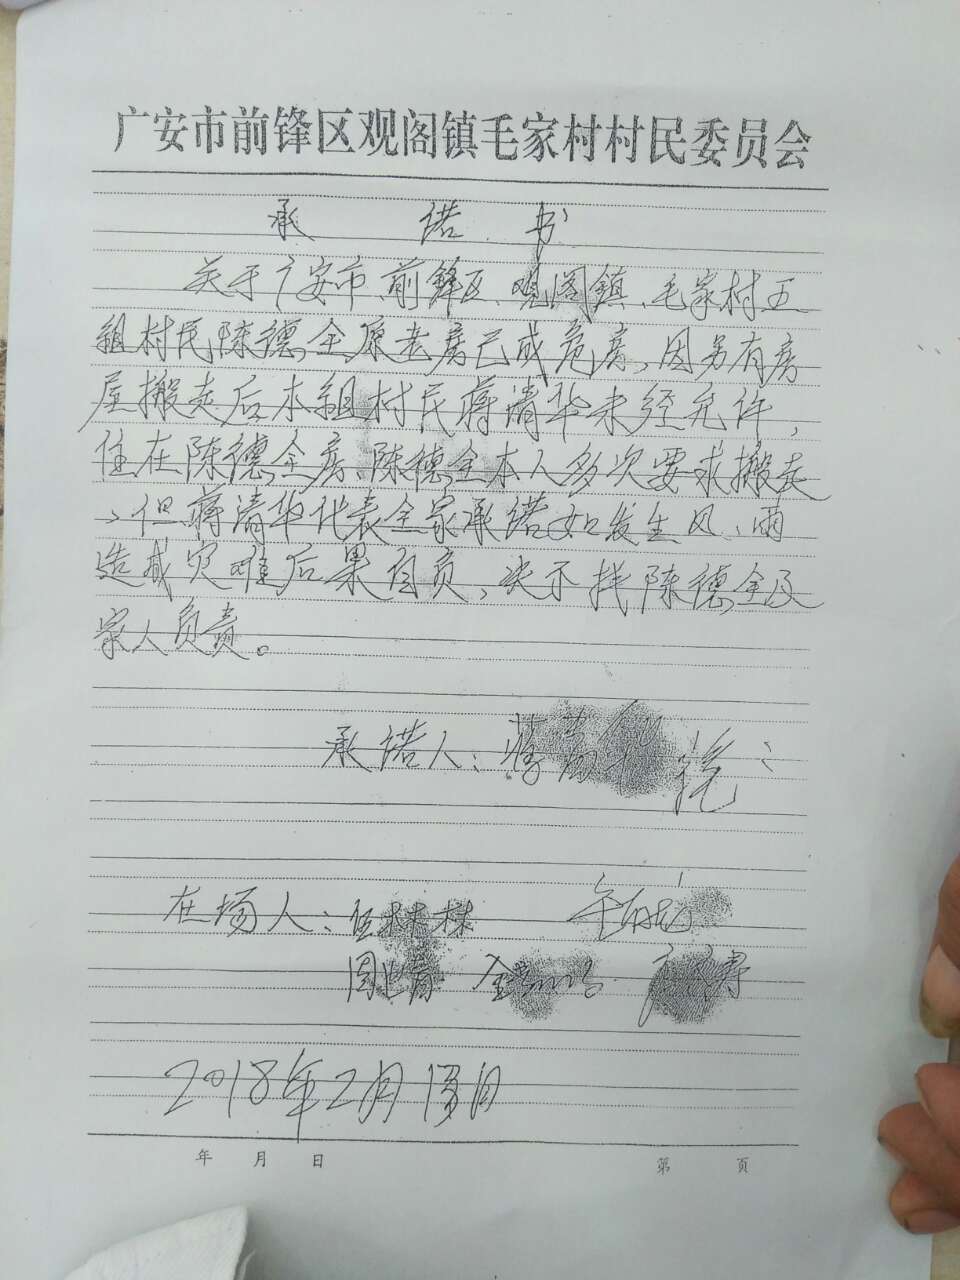 广安市前锋区观阁镇毛家村村民委员会
承 诺 书
关于广安市、前锋区、观阁镇、毛家村五
组村民陈德全原老房已成危房、因另有房
屋搬走后本组村民蒋清华未经允许，
住在陈德全房、陈德全本人多次要求搬走
、但蒋清华代表全家承诺如发生风、雨
造成灾难后果自负、决不找陈德全及
家人负责。
承诺人：蒋
在场人：伍林林
周
2018年2月 日
年 月 日 第 页